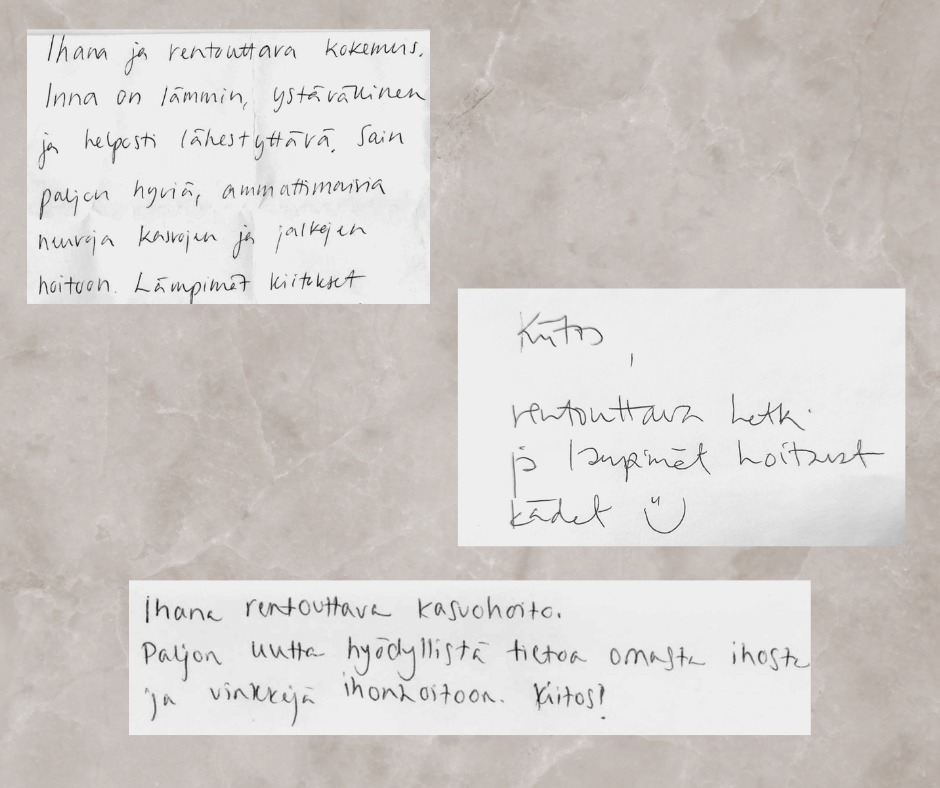 Ihana ja rentouttava kokemus.
Inna on lämmin, ystävällinen
ja helposti lähestyttävä. Sain
paljon hyviä, ammattimaisia
neuvoja kasvojen ja jalkojen
hoitoon. Lämpimät kiitokset
Kiitos,
rentouttava hetki
ja lämpimät hoitavat
kädet
Ihana rentouttava kasvohoito.
Paljon uutta hyödyllistä tietoa omasta ihosta
ja vinkkejä ihonhoitoon. Kiitos!